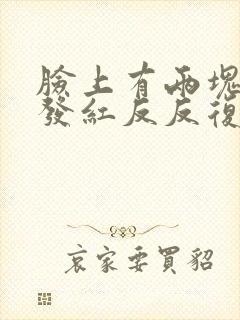 臉上有兩塊
發紅反反復
哀家要買貂